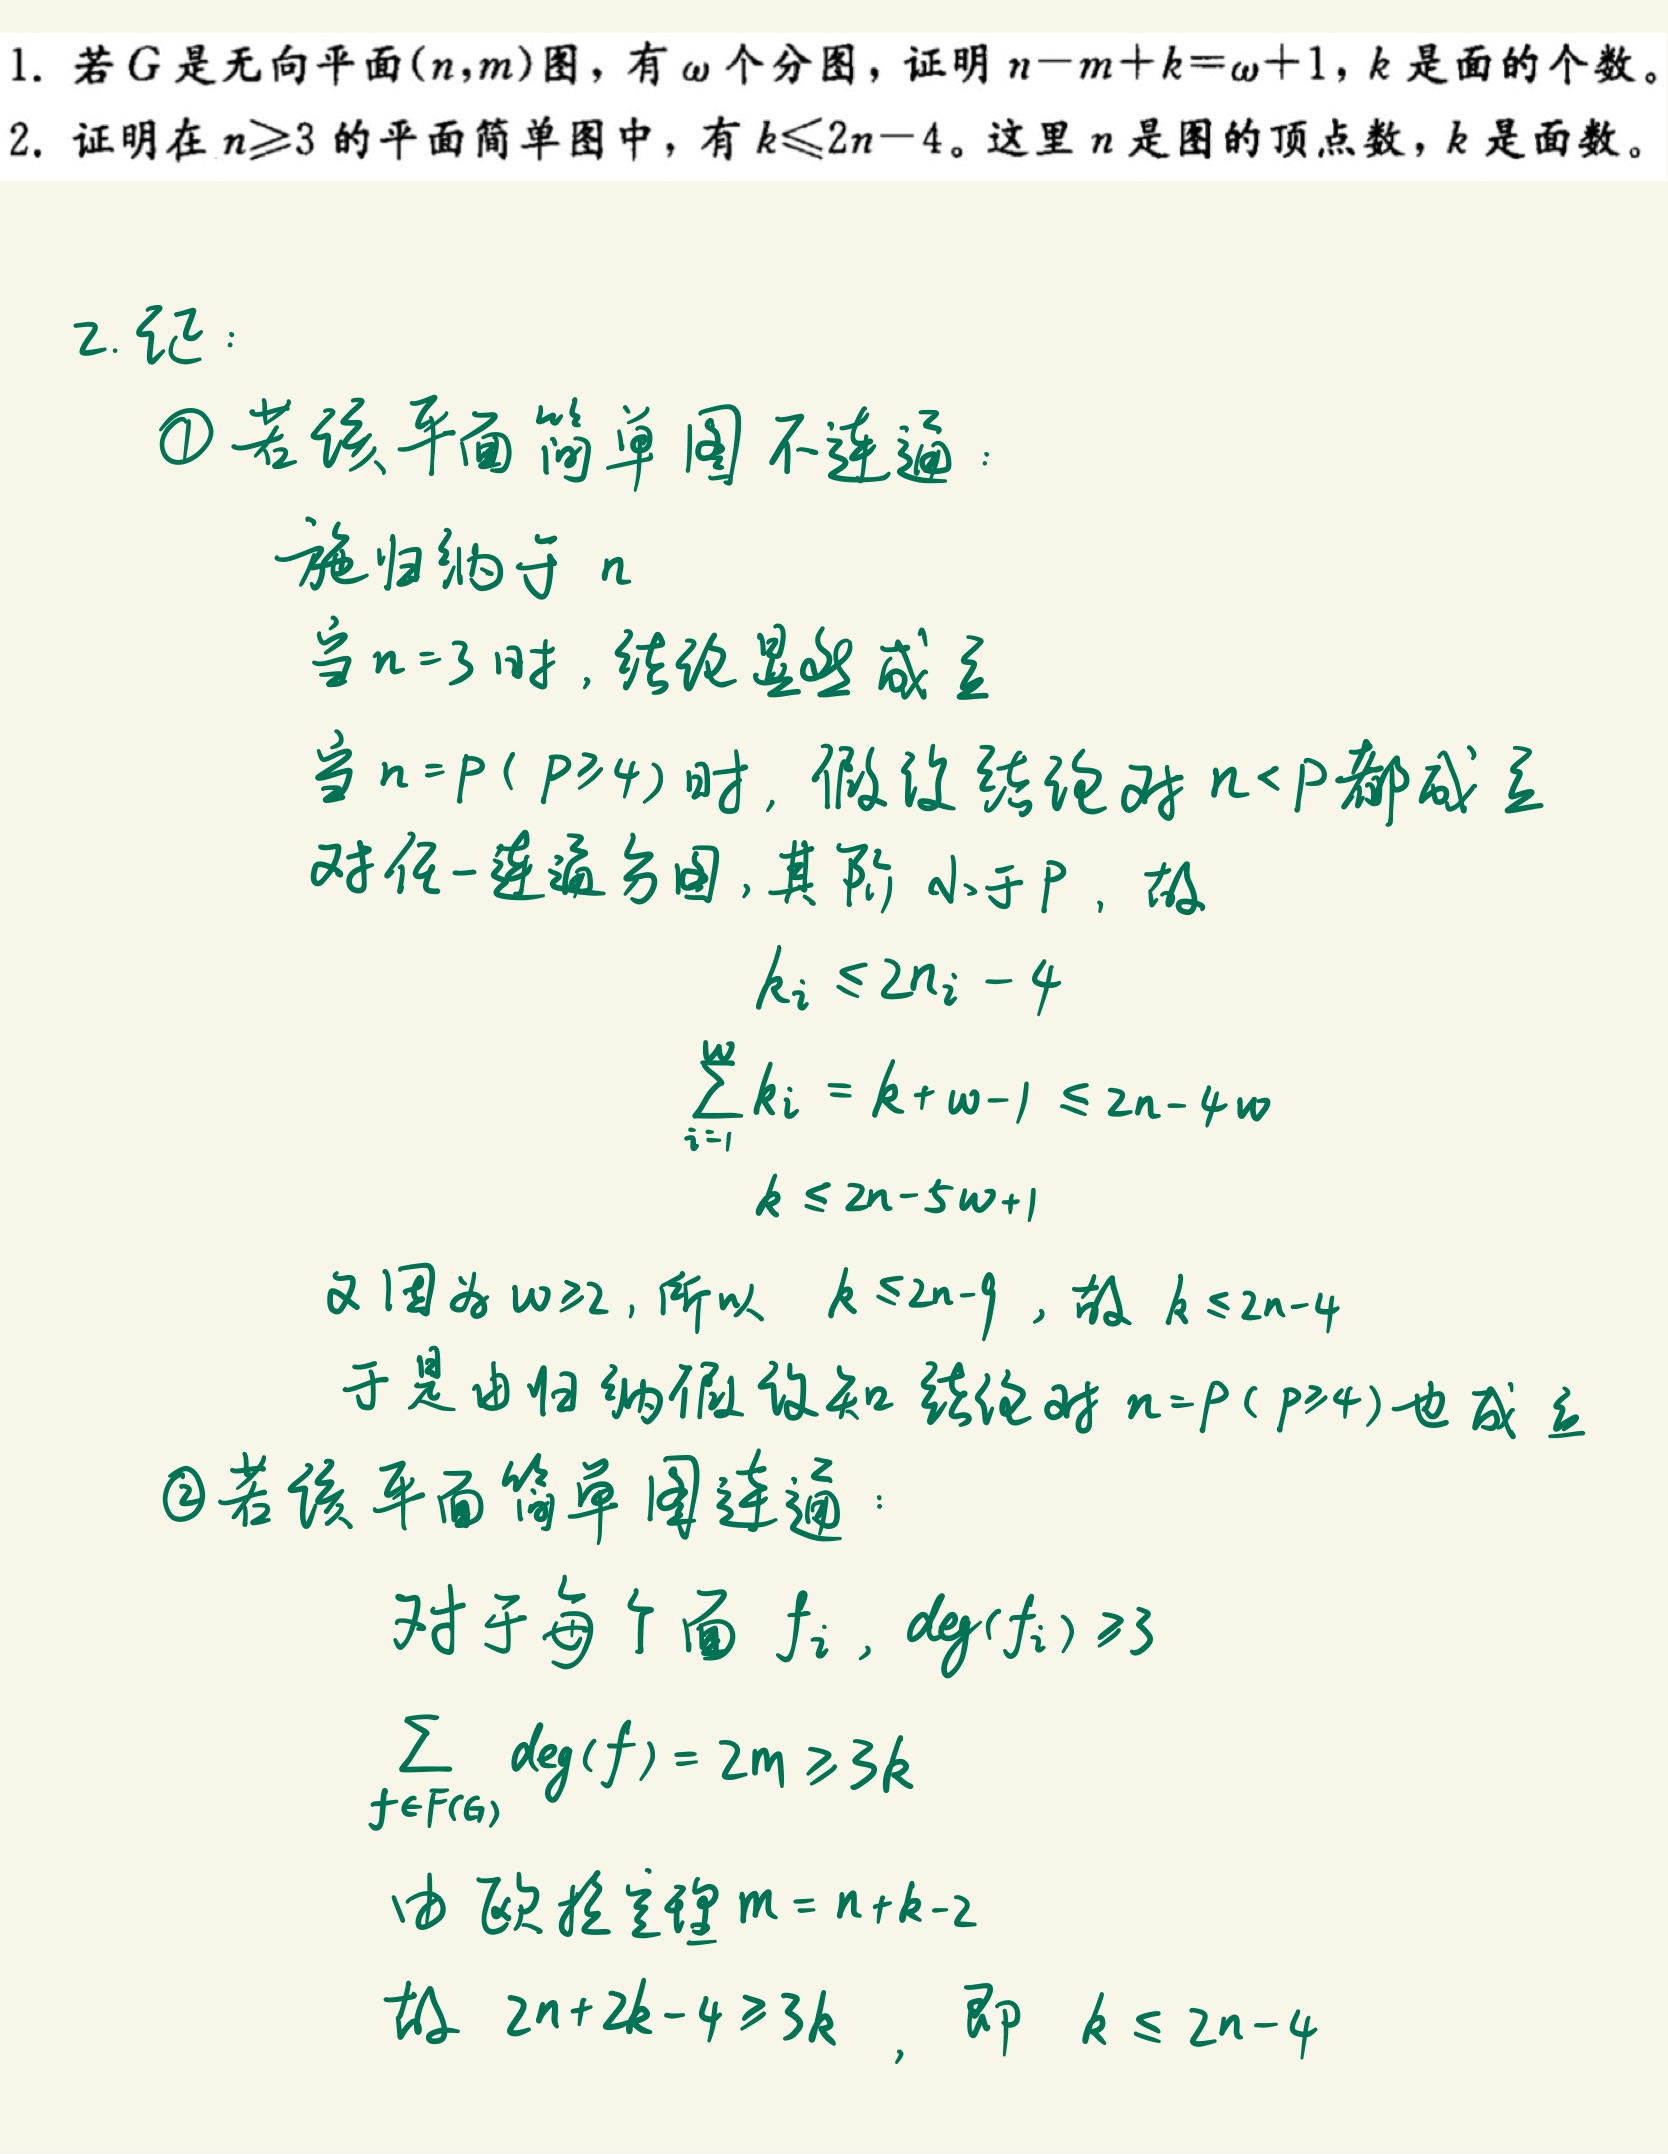 1. 若 G 是无向平面(n,m)图，有 ω 个分图，证明 n－m＋k＝ω＋1，k 是面的个数。
2. 证明在 n≥3 的平面简单图中，有 k≤2n－4。这里 n 是图的顶点数，k 是面数。
2. 证：
① 若该平面简单图不连通：
施归纳于 n
当 n=3 时，结论显然成立
当 n=p（p≥4）时，假设结论对 n<p 都成立
对任一连通分图，其阶小于 p，故
k_i ≤ 2n_i - 4
∑_{i=1}^{w} k_i = k+w-1 ≤ 2n-4w
k ≤ 2n-5w+1
又因为 w≥2，所以 k≤2n-9，故 k≤2n-4
于是由归纳假设知结论对 n=p（p≥4）也成立
② 若该平面简单图连通：
对于每个面 f_i，deg(f_i)≥3
∑_{f∈F(G)} deg(f) = 2m ≥ 3k
由欧拉定理 m = n+k-2
故 2n+2k-4 ≥ 3k，即 k ≤ 2n-4